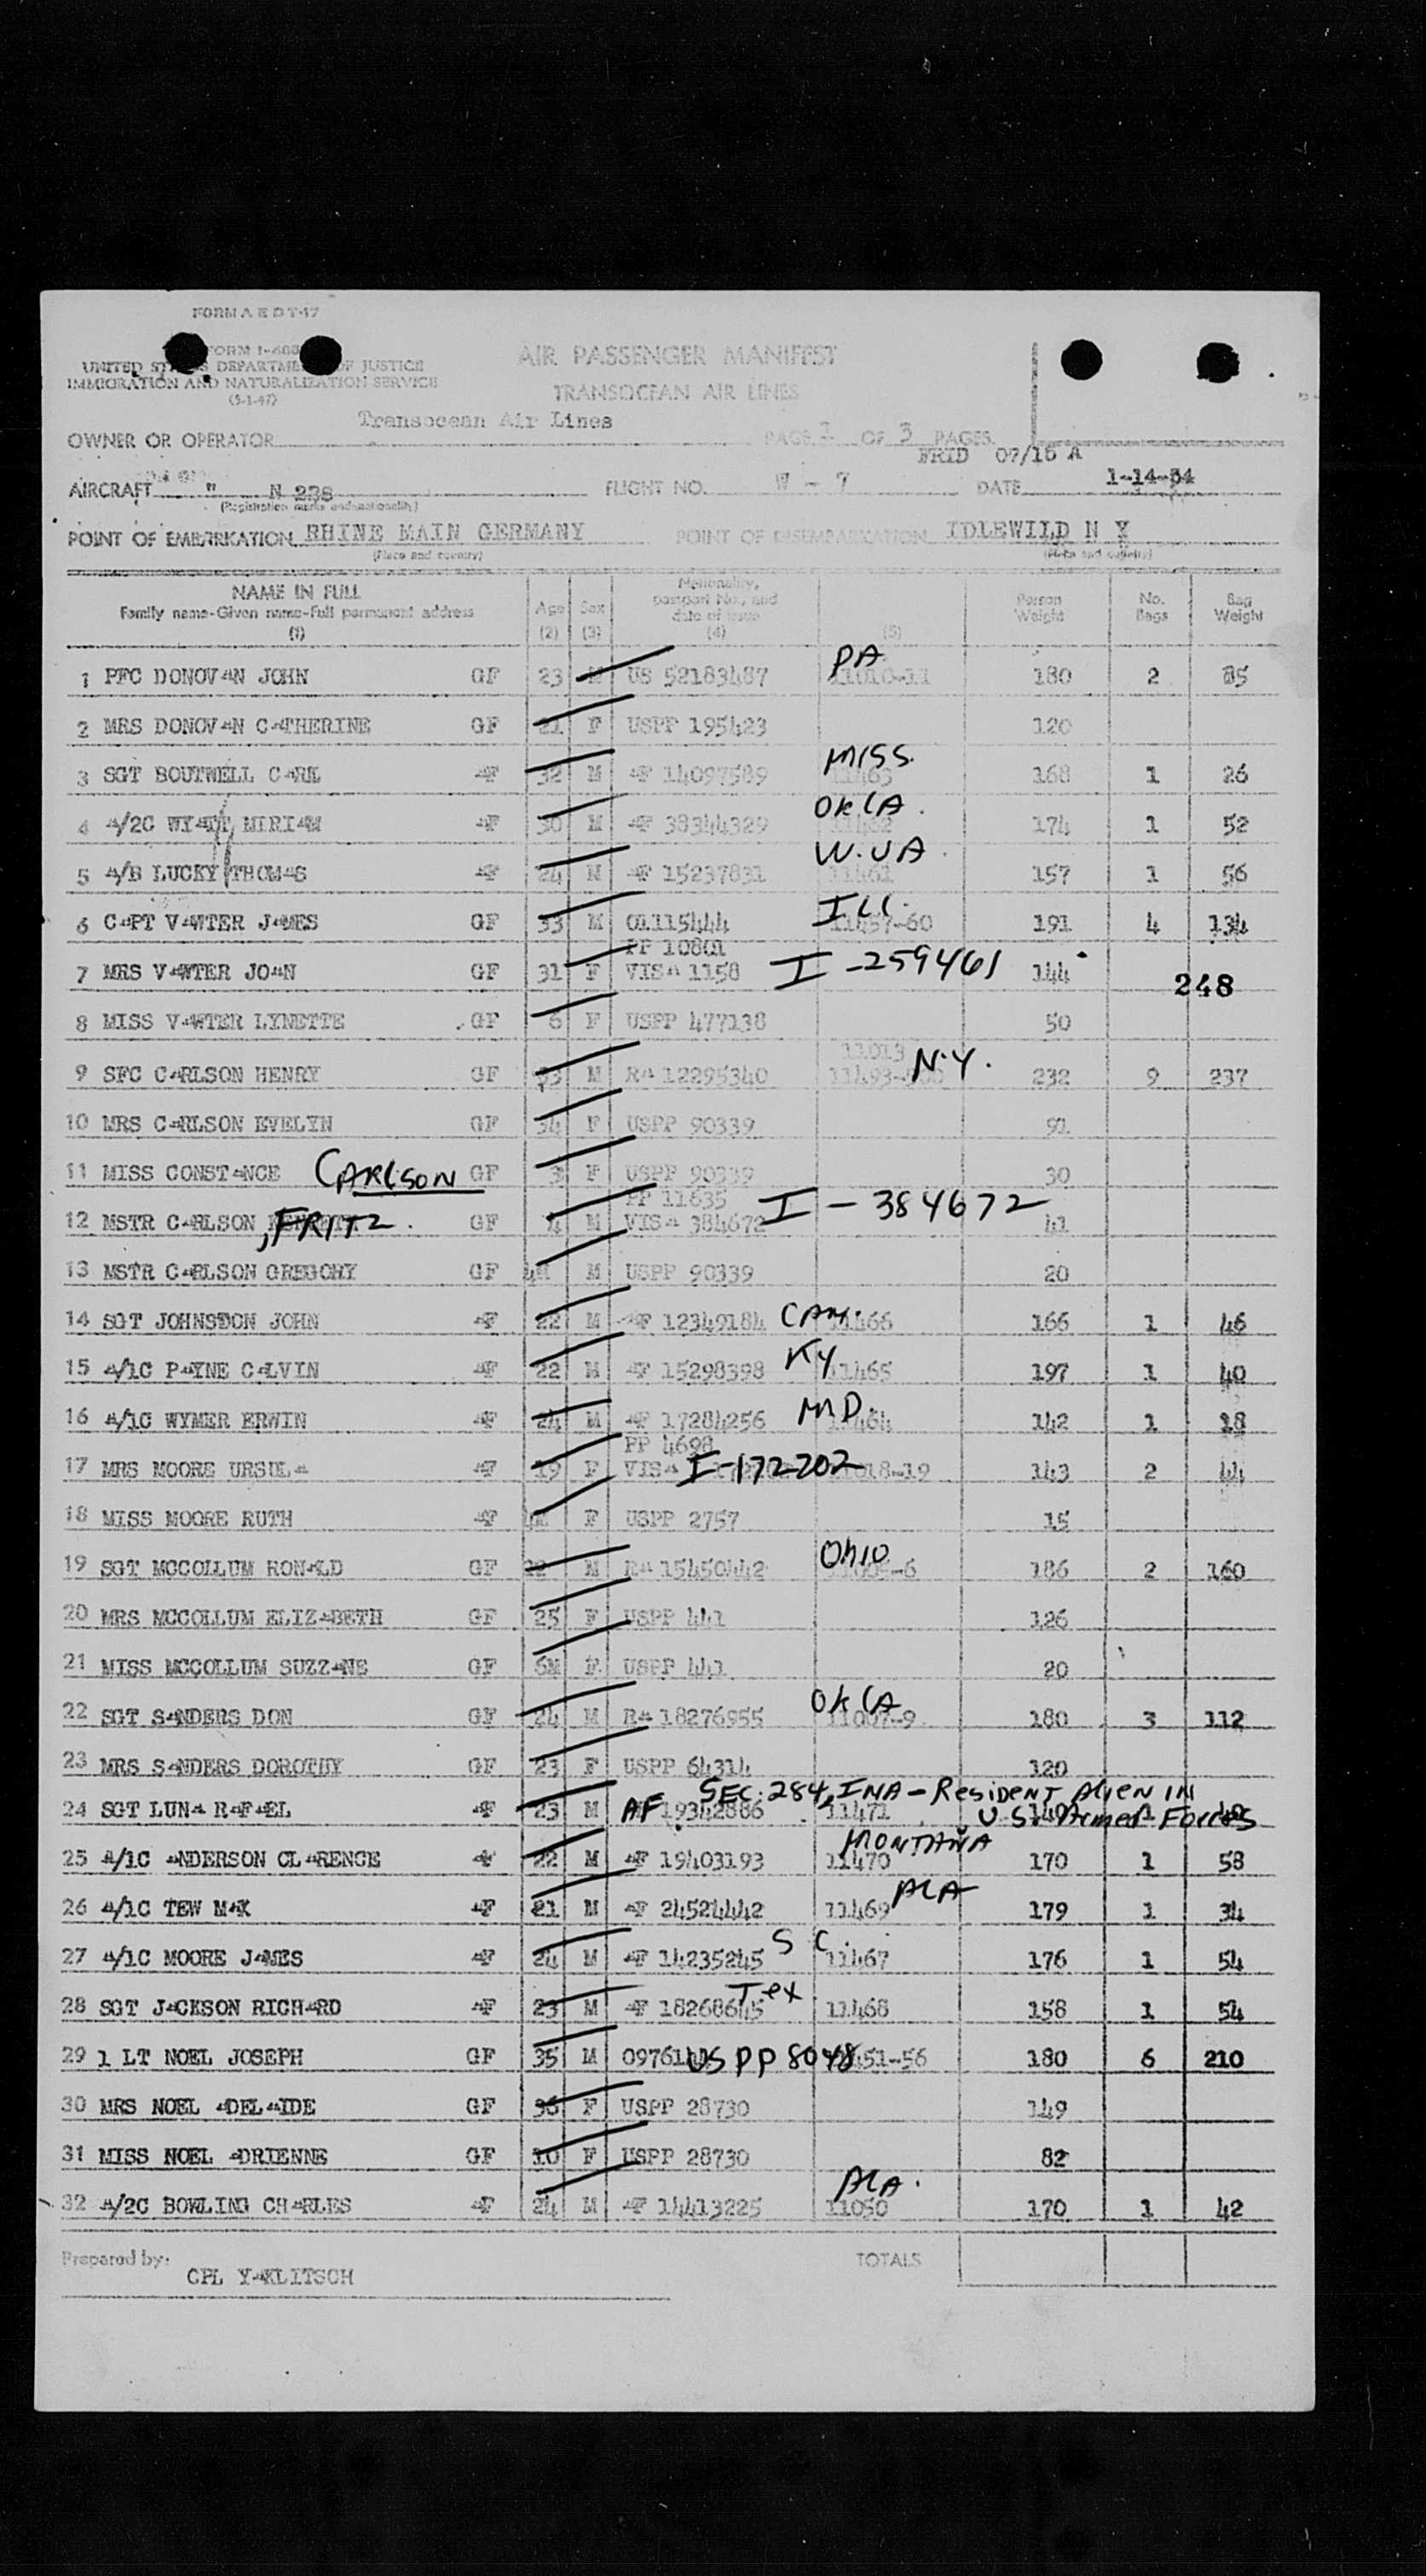 FORM A E D T-17
FORM I-466
UNITED STATES DEPARTMENT OF JUSTICE
IMMIGRATION AND NATURALIZATION SERVICE
(5-1-47)
AIR PASSENGER MANIFEST
TRANSOCEAN AIR LINES
OWNER OR OPERATOR Transocean Air Lines PAGE 1 OF 3 PAGES
FRID 07/15 A
AIRCRAFT " N 238 FLIGHT NO. W - 7 DATE 1-14-54
(Registration marks and nationality)
POINT OF EMBARKATION RHINE MAIN GERMANY POINT OF DISEMBARKATION IDLEWILD N Y
(Place and country) (Place and country)
NAME IN FULL Family name-Given name-Full permanent address (1) Age (2) Sex (3) Nationality, passport No., and date of issue (4) (5) Person Weight No. Bags Bag Weight
1 PFC DONOVAN JOHN GF 23 M US 52183487 PA 11010-11 180 2 85
2 MRS DONOVAN CATHERINE GF 21 F USPP 195423 120
3 SGT BOUTWELL CARL AF 32 M AF 14097589 MISS. 11463 168 1 26
4 A/2C WYATT MIRIAM AF 30 M AF 38344329 OKLA. 11462 174 1 52
5 A/B LUCKY THOMAS AF 24 M AF 15237831 W.VA. 11461 157 1 56
6 CAPT VAWTER JAMES GF 33 M 01115444 ILL. 11457-60 191 4 134
7 MRS VAWTER JOAN GF 31 F PP 10801 VISA 1158 I-259461 144
248
8 MISS VAWTER LYNETTE GF 6 F USPP 477138 50
9 SFC CARLSON HENRY GF 33 M RA 12295340 11013 11493-500 N.Y. 232 9 237
10 MRS CARLSON EVELYN GF 34 F USPP 90339 91
11 MISS CONSTANCE CARLSON GF 3 F USPP 90339 30
12 MSTR CARLSON , FRITZ. GF 4 M PP 11635 VISA 384672 I-384672 41
13 MSTR CARLSON GREGORY GF 4M M USPP 90339 20
14 SGT JOHNSTON JOHN AF 22 M AF 12349184 11466 166 1 46
15 A/1C PAYNE CALVIN AF 22 M AF 15298398 KY 11465 197 1 40
16 A/1C WYMER ERWIN AF 24 M AF 17284256 MD. 11464 142 1 18
17 MRS MOORE URSULA AF 19 F PP 4698 VISA I-172202 11018-19 143 2 44
18 MISS MOORE RUTH AF F USPP 2757 15
19 SGT MCCOLLUM RONALD GF 22 M RA 15450442 Ohio 11005-6 186 2 160
20 MRS MCCOLLUM ELIZABETH GF 25 F USPP 441 126
21 MISS MCCOLLUM SUZZANE GF 6M F USPP 441 20
22 SGT SANDERS DON GF 24 M RA 18276955 OKLA 11007-9 180 3 112
23 MRS SANDERS DOROTHY GF 23 F USPP 64314 120
24 SGT LUNA RAFAEL AF 23 M AF 19342886 11471 SEC. 284, INA - Resident Alien IN U.S. Armed Forces 140 1
25 A/1C ANDERSON CLARENCE AF 22 M AF 19403193 MONTANA 11470 170 1 58
26 A/1C TEW MAX AF 21 M AF 24521442 ALA 11469 179 1 34
27 A/1C MOORE JAMES AF 24 M AF 14235245 S C. 11467 176 1 54
28 SGT JACKSON RICHARD AF 23 M AF 18268645 Tex 11468 158 1 54
29 1 LT NOEL JOSEPH GF 35 M US PP 8048 11451-56 180 6 210
30 MRS NOEL ADELAIDE GF 36 F USPP 28730 149
31 MISS NOEL ADRIENNE GF 10 F USPP 28730 82
32 A/2C BOWLING CHARLES AF 24 M AF 14413225 ALA. 11050 170 1 42
Prepared by: CPL YAKLITSCH TOTALS